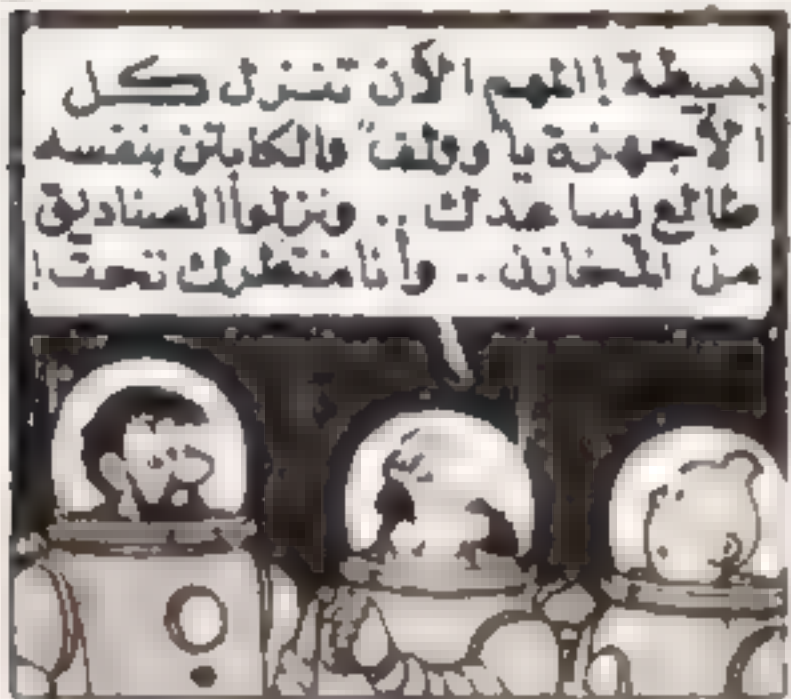 بسيطة ! المهم الآن تنزل كل
الأجهزة يا "وولف" والكابتن بنفسه
طالع يساعدك .. ونزلوا الصناديق
من المخازن .. وأنا منتظرك تحت !